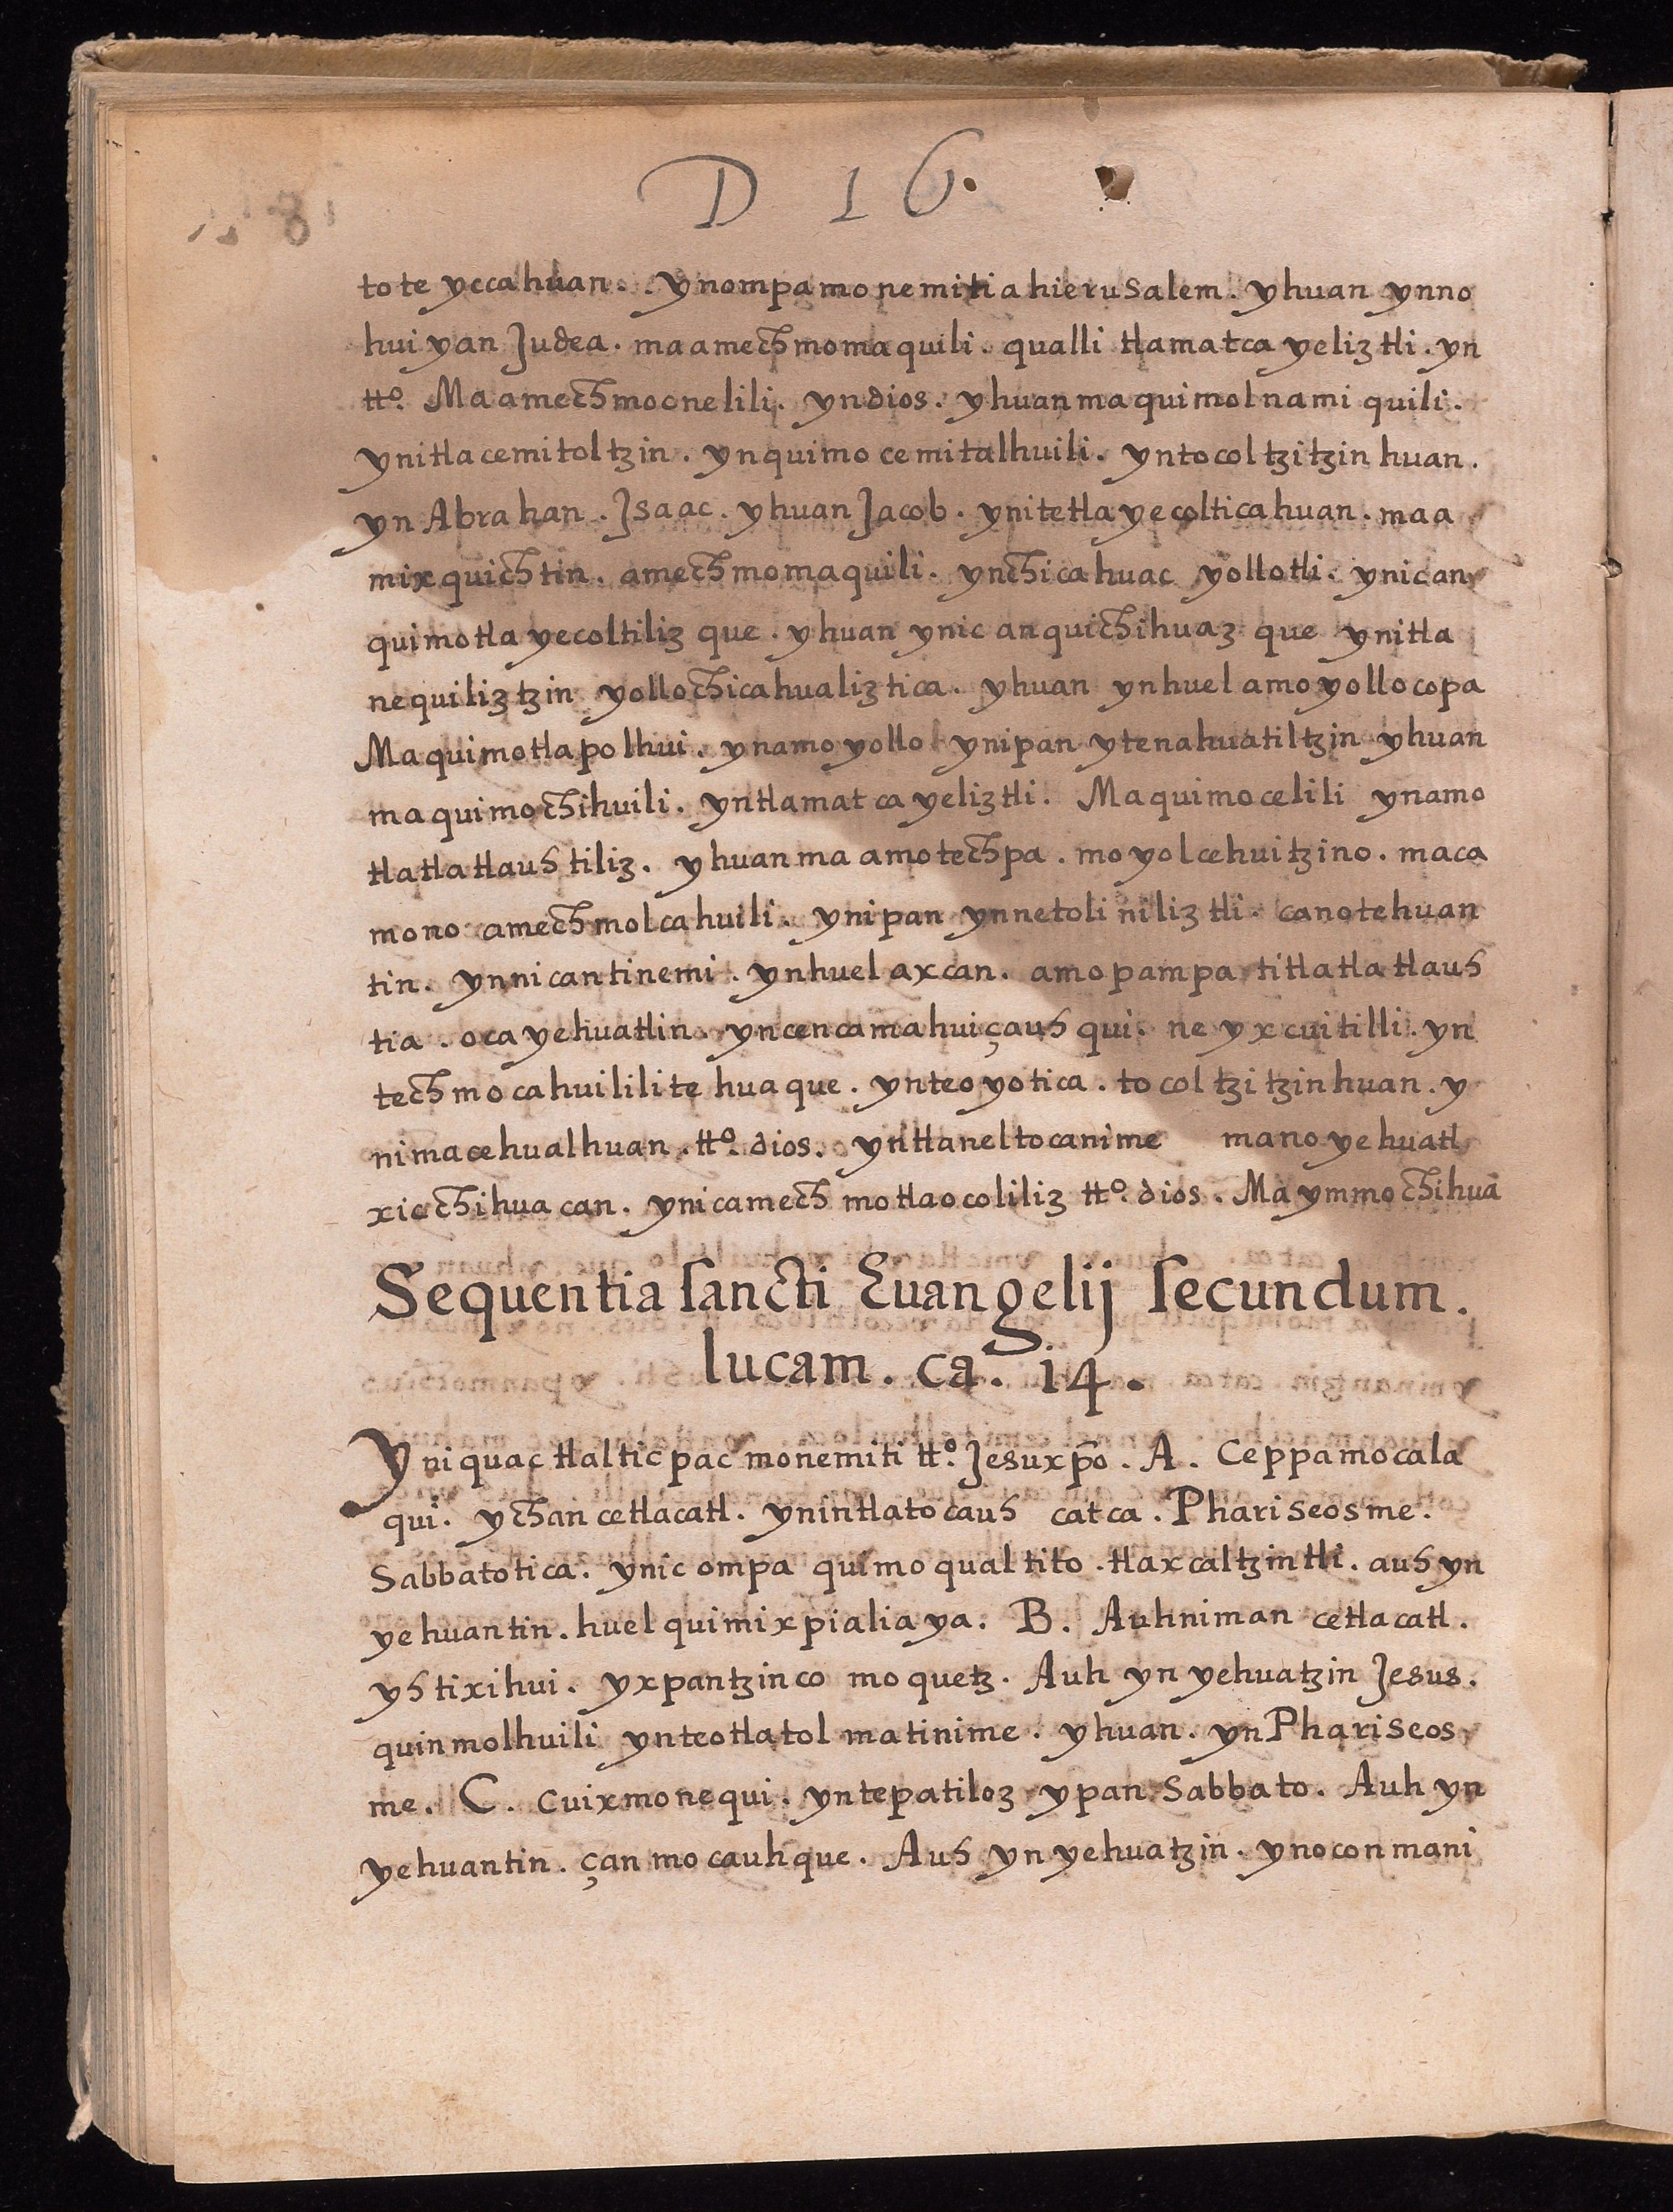 D 16.
tote yccahuan. ynompamonemitia hierusalem. yhuan ynno
huiyan Judea. maamechmomaquili. qualli tlamatcayeliztli. yn
tto. Maamechmocnelili. yndios. yhuan maquimolnamiquili.
ynitlacemitoltzin. ynquimocemitalhuili. yntocoltzitzinhuan.
yn Abrahan. Isaac. yhuan Jacob. ynitetlayecolticahuan. maa
mixquichtin. amechmomaquili. ynchicahuac yollotli. ynican
quimotlayecoltilizque. yhuan ynic anquichihuazque ynitla
nequiliztzin yollochicahualiztica. yhuan ynhuel amoyollocopa
Maquimotlapolhui. ynamoyollo ynipan ytenahuatiltzin yhuan
maquimochihuili. yntlamatcayeliztli. Maquimocelili ynamo
tlatlatlauhtiliz. yhuan ma amotechpa. moyolcehuitzino. maca
mono amechmolcahuili. ynipan ynnetoliniliztli. canotehuan
tin. ynnicantinemi. ynhuel axcan. amopampa titlatlatlauh
tia. ocayehuatlin. yncencamahuiçauhqui. neyxcuitilli. yn
techmocahuililitehuaque. ynteoyotica. tocoltzitzinhuan. y
nimacehualhuan. tto. dios. yntlaneltocanime manoyehuatl
xicchihuacan. ynicamechmotlaocoliliz tto. dios. Maymmochihuā
Sequentia sancti Euangelij secundum.
lucam. ca. 14.
Yniquac tlalticpac monemiti tto. Jesuxpō. A. Ceppa mocala
qui. ychan cetlacatl. ynintlatocauh catca. Phariseosme.
Sabbatotica. ynic ompa quimoqualtito. tlaxcaltzintli. auh yn
yehuantin. huel quimixpialiaya. B. Auh niman cetlacatl.
yhtixihui. yxpantzinco moquetz. Auh yn yehuatzin Jesus.
quinmolhuili ynteotlatolmatinime. yhuan. yn Phariseos
me. C. cuixmonequi. yntepatiloz ypan sabbato. Auh yn
yehuantin. çan mocauhque. Auh yn yehuatzin. ynoconmani